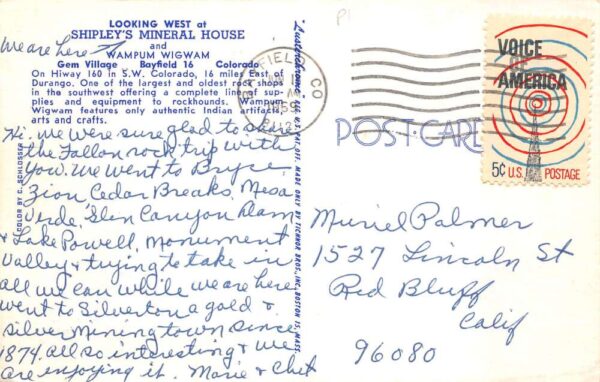 LOOKING WEST at
SHIPLEY'S MINERAL HOUSE
and
WAMPUM WIGWAM
Gem Village Bayfield 16 Colorado
On Hiway 160 in S.W. Colorado, 16 miles East of
Durango. One of the largest and oldest rock shops
in the southwest offering a complete line of sup-
plies and equipment to rockhounds. Wampum
Wigwam features only authentic Indian artifacts,
arts and crafts.
We are here
Hi. We were sure glad to share
the Fallon rock trip with
You. We went to Bryce
Zion Cedar Breaks, Mesa
Verde, Glen Canyon Dam
& Lake Powell, Monument
Valley & trying to take in
all we can while we are here
went to Silverton a gold &
silver mining town since
1874. all so interesting & we
are enjoying it. Marie & Chet
COLOR BY C. SCHLOSSER
MADE ONLY BY TICHNOR BROS., INC., BOSTON 15, MASS.
BAYFIELD, CO
POST CARD
P1
VOICE
OF
AMERICA
5¢ U.S. POSTAGE
Muriel Palmer
1527 Lincoln St
Red Bluff
Calif
96080